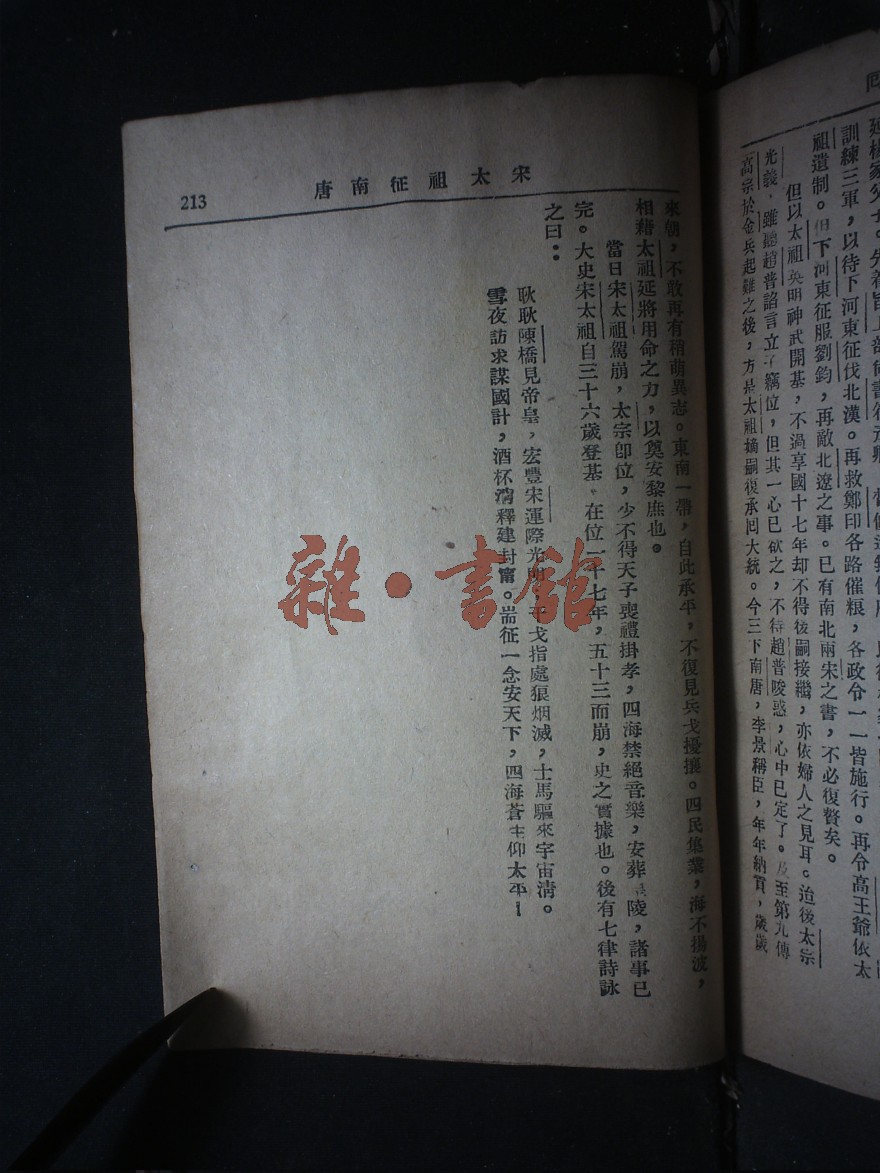 訓練三軍，以待下河東征伐北漢。再救鄭印各路催粮，各政令一一皆施行。再令高王爺依太
祖遺制。但下河東征服劉鈞，再敵北遼之事。已有南北兩宋之書，不必復贅矣。
但以太祖英明神武開基，不過享國十七年却不得後嗣接繼，亦依婦人之見耳。迨後太宗
光義，雖聽趙普諂言立子竊位，但其一心已欲之，不待趙普唆惑，心中已定了。及至第九傳
高宗於金兵起難之後，方是太祖嫡嗣復承回大統。今三下南唐，李景稱臣，年年納貢，歲歲
宋太祖征南唐
213
來朝，不敢再有稍萌異志。東南一帶，自此承平，不復見兵戈擾攘。四民集業，海不揚波，
相藉太祖延將用命之力，以奠安黎庶也。
當日宋太祖駕崩，太宗卽位，少不得天子喪禮掛孝，四海禁絕音樂，安葬陵，諸事已
完。大史宋太祖自三十六歲登基，在位一十七年，五十三而崩，史之實據也。後有七律詩詠
之曰：
耿耿陳橋見帝皇，宏豐宋運際光戈指處狼烟滅，士馬驅來宇宙淸。
雪夜訪求謀國計，酒杯消釋建封甯。耑征一念安天下，四海蒼生仰太平！
雜·書館